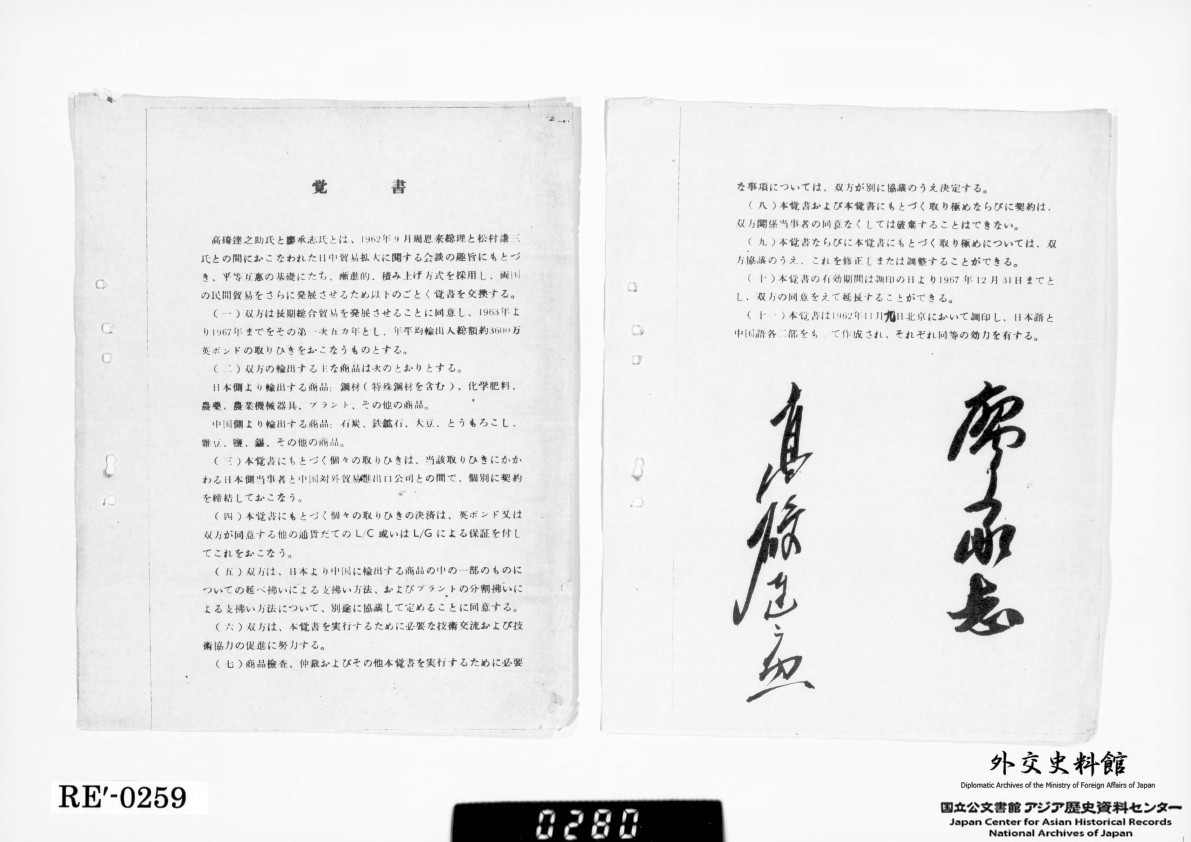 覚書
高碕達之助氏と廖承志氏とは、1962年9月周恩来総理と松村謙三
氏との間におこなわれた日中貿易拡大に関する会談の趣旨にもとづ
き、平等互恵の基礎にたち、漸進的、積み上げ方式を採用し、両国
の民間貿易をさらに発展させるため以下のごとく覚書を交換する。
（一）双方は長期総合貿易を発展させることに同意し、1963年よ
り1967年までをその第一次五カ年とし、年平均輸出入総額約3600万
英ポンドの取りひきをおこなうものとする。
（二）双方の輸出する主な商品は次のとおりとする。
日本側より輸出する商品：鋼材（特殊鋼材を含む）、化学肥料、
農薬、農業機械器具、プラント、その他の商品。
中国側より輸出する商品：石炭、鉄鉱石、大豆、とうもろこし、
雑豆、鹽、錫、その他の商品。
（三）本覚書にもとづく個々の取りひきは、当該取りひきにかか
わる日本側当事者と中国対外貿易進出口公司との間で、個別に契約
を締結しておこなう。
（四）本覚書にもとづく個々の取りひきの決済は、英ポンド又は
双方が同意する他の通貨だてのL/C或いはL/Gによる保証を付し
てこれをおこなう。
（五）双方は、日本より中国に輸出する商品の中の一部のものに
ついての延べ拂いによる支拂い方法、およびプラントの分割拂いに
よる支拂い方法について、別途に協議して定めることに同意する。
（六）双方は、本覚書を実行するために必要な技術交流および技
術協力の促進に努力する。
（七）商品検査、仲裁およびその他本覚書を実行するために必要
な事項については、双方が別に協議のうえ決定する。
（八）本覚書および本覚書にもとづく取り極めならびに契約は、
双方関係当事者の同意なくしては破棄することはできない。
（九）本覚書ならびに本覚書にもとづく取り極めについては、双
方協議のうえ、これを修正しまたは調整することができる。
（十）本覚書の有効期間は調印の日より1967年12月31日までと
し、双方の同意をえて延長することができる。
（十一）本覚書は1962年11月九日北京において調印し、日本語と
中国語各二部をもって作成され、それぞれ同等の効力を有する。
廖承志
高碕達之助
外交史料館
Diplomatic Archives of the Ministry of Foreign Affairs of Japan
国立公文書館 アジア歴史資料センター
Japan Center for Asian Historical Records
National Archives of Japan
RE′-0259
0280